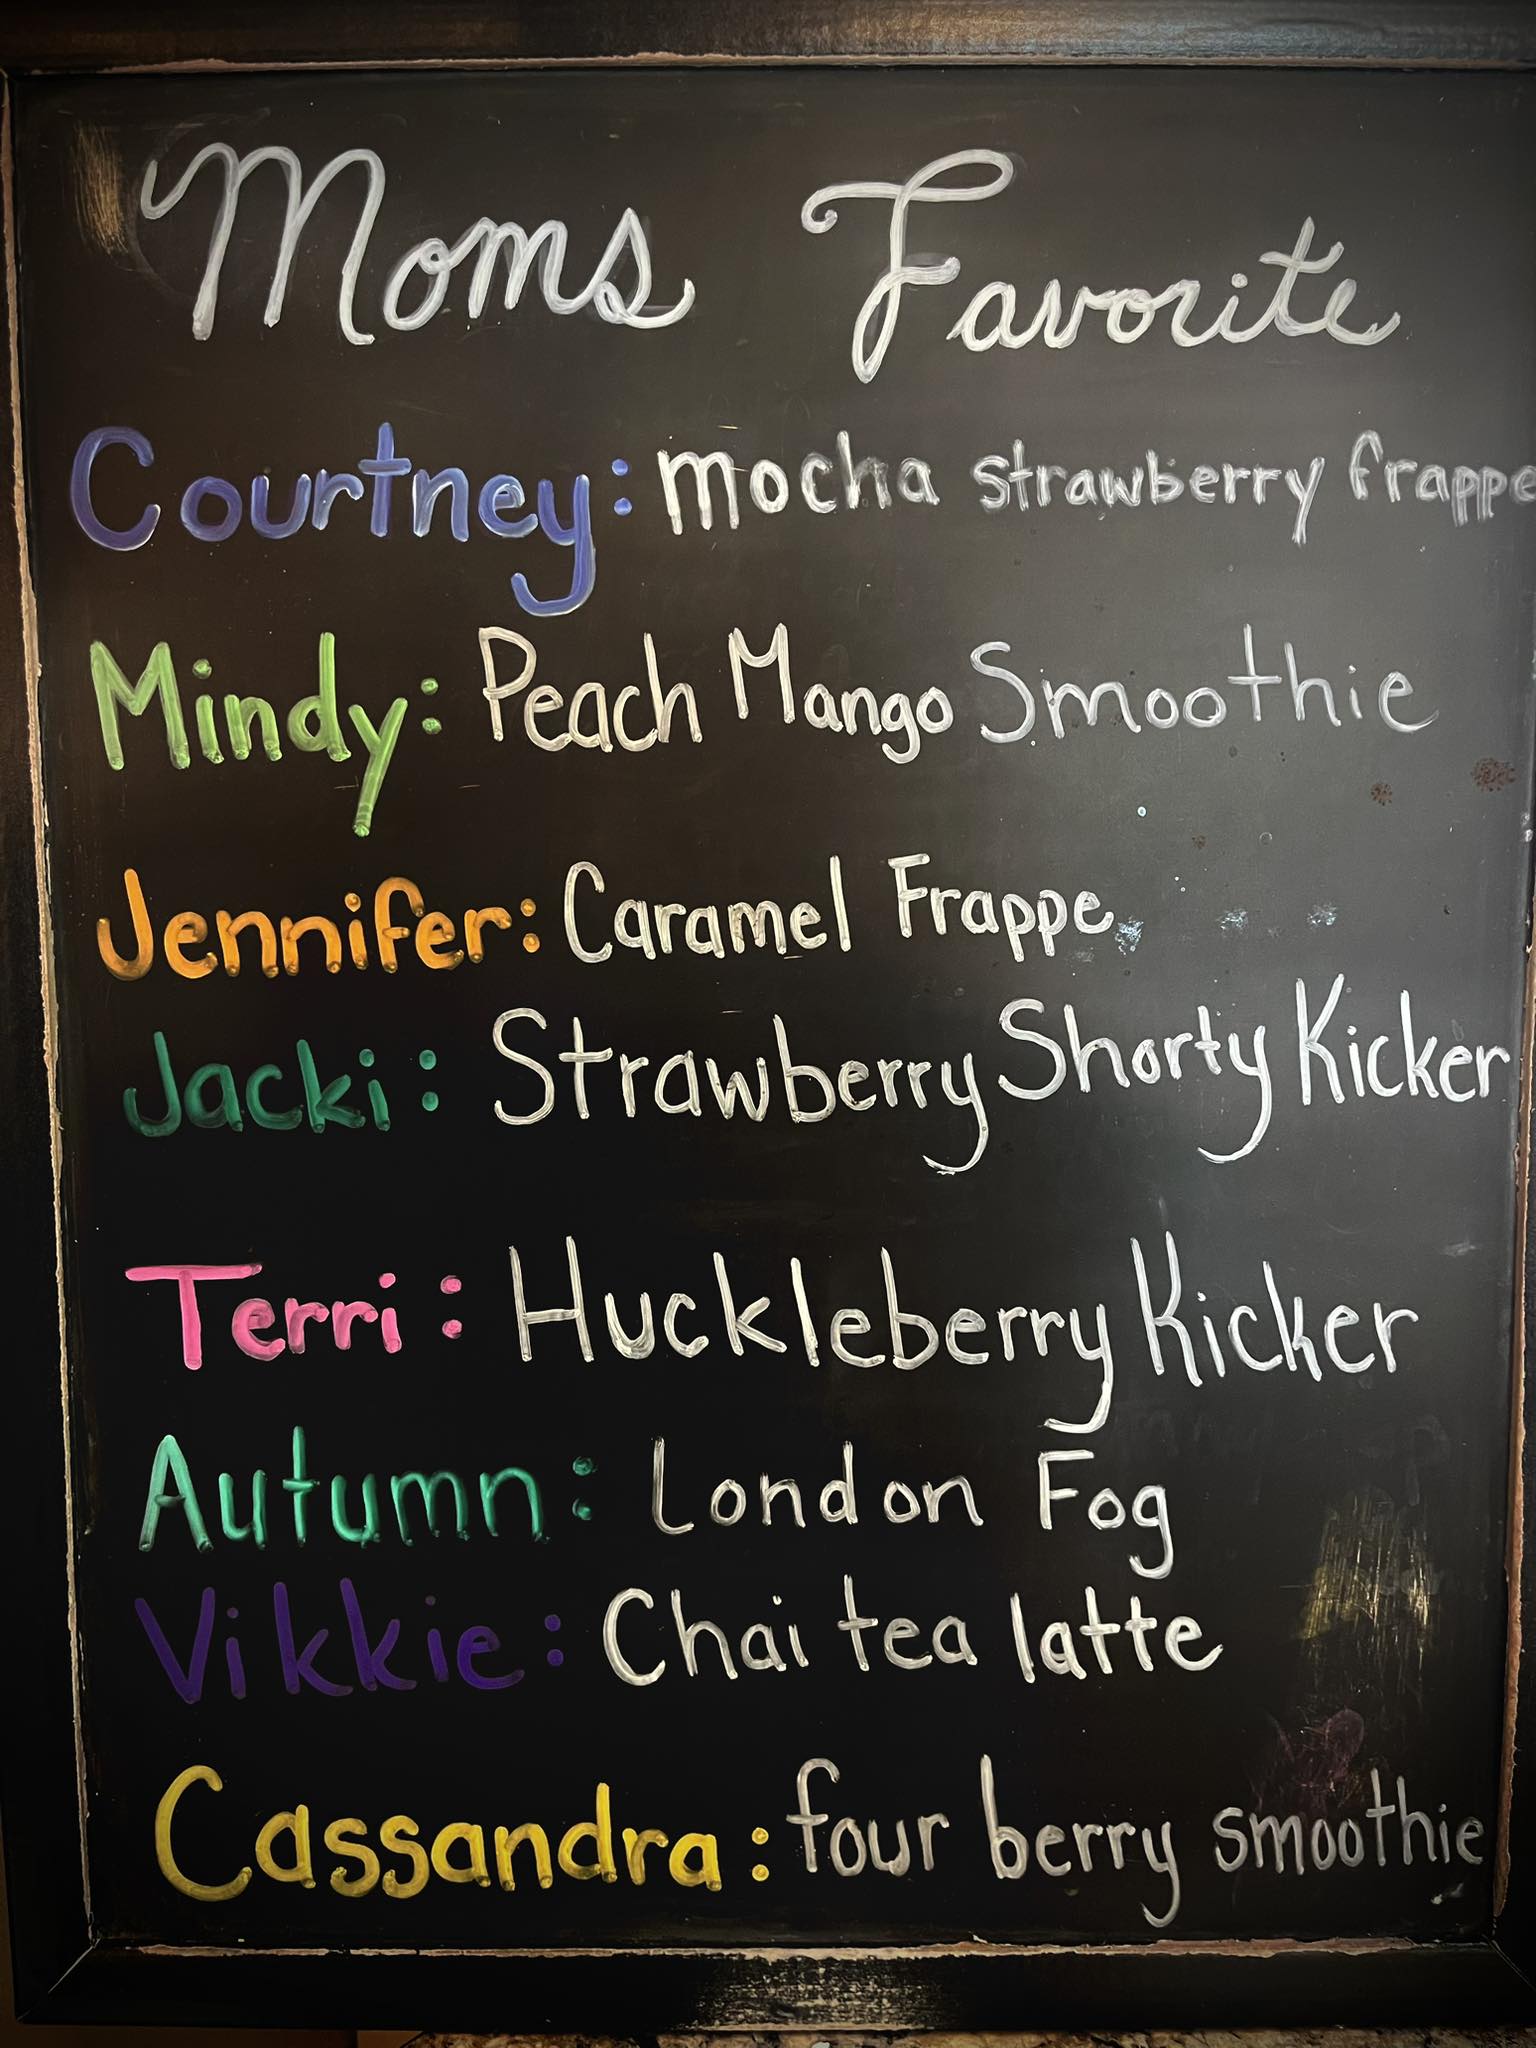 Moms Favorite
Courtney: mocha strawberry frappe
Mindy: Peach Mango Smoothie
Jennifer: Caramel Frappe
Jacki: Strawberry Shorty Kicker
Terri: Huckleberry Kicker
Autumn: London Fog
Vikkie: Chai tea latte
Cassandra: four berry smoothie